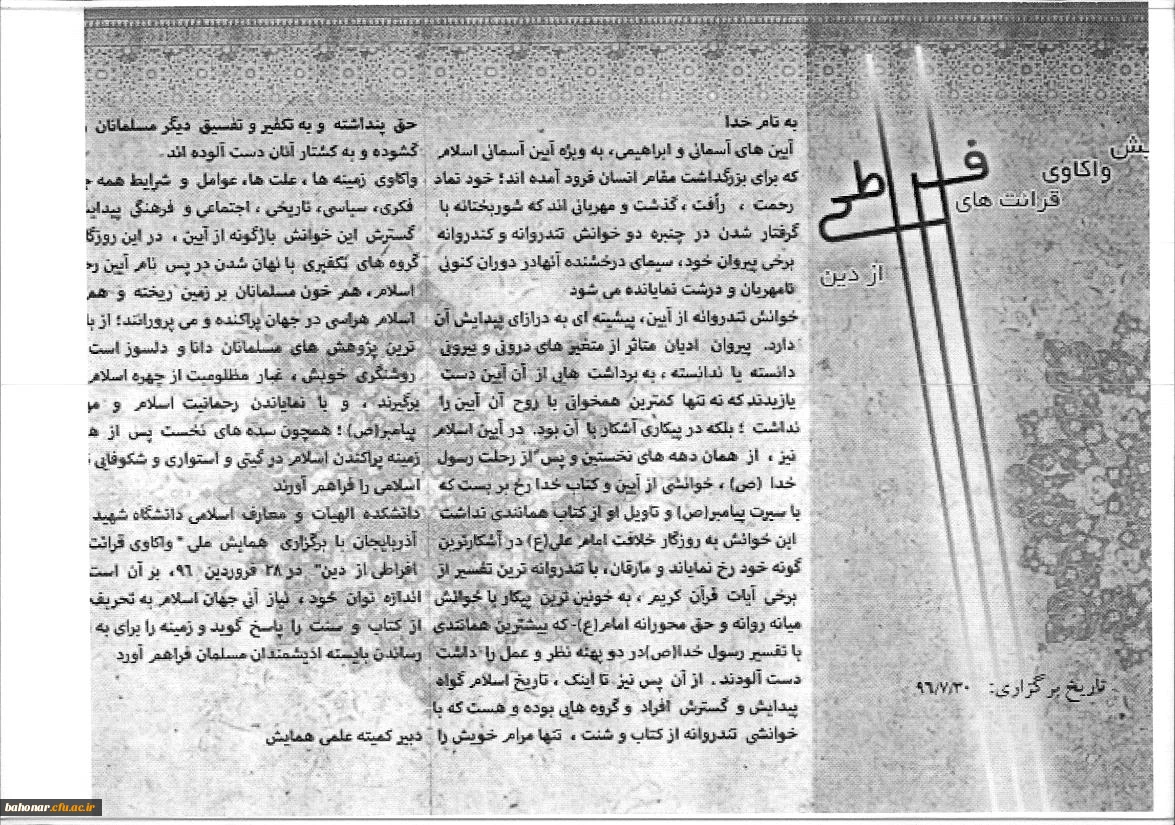 واکاوی
قرائت های
افراطی
از دین
تاریخ برگزاری: ۹۶/۷/۳۰
به نام خدا
آیین های آسمانی و ابراهیمی، به ویژه آیین آسمانی اسلام
که برای بزرگداشت مقام انسان فرود آمده اند؛ خود نماد
رحمت ، رأفت ، گذشت و مهربانی اند که شوربختانه با
گرفتار شدن در چنبره دو خوانش تندروانه و کندروانه
برخی پیروان خود، سیمای درخشنده آنهادر دوران کنونی
نامهربان و درشت نمایانده می شود
خوانش تندروانه از آیین، پیشینه ای به درازای پیدایش آن
دارد. پیروان ادیان متاثر از متغیر های درونی و بیرونی
دانسته یا ندانسته ، به برداشت هایی از آن آیین دست
یازیدند که نه تنها کمترین همخوانی با روح آن آیین را
نداشت ؛ بلکه در پیکاری آشکار با آن بود. در آیین اسلام
نیز ، از همان دهه های نخستین و پس از رحلت رسول
خدا (ص) ، خوانشی از آیین و کتاب خدا رخ بر بست که
با سیرت پیامبر(ص) و تاویل او از کتاب همانندی نداشت
این خوانش به روزگار خلافت امام علی(ع) در آشکارترین
گونه خود رخ نمایاند و مارقان، با تندروانه ترین تفسیر از
برخی آیات قرآن کریم ، به خونین ترین پیکار با خوانش
میانه روانه و حق محورانه امام(ع)- که بیشترین همانندی
با تفسیر رسول خدا(ص)در دو پهنه نظر و عمل را داشت
دست آلودند . از آن پس نیز تا اینک ، تاریخ اسلام گواه
پیدایش و گسترش افراد و گروه هایی بوده و هست که با
خوانشی تندروانه از کتاب و سنت ، تنها مرام خویش را
حق پنداشته و به تکفیر و تفسیق دیگر مسلمانان
گشوده و به کشتار آنان دست آلوده اند.
واکاوی زمینه ها ، علت ها، عوامل و شرایط همه
فکری، سیاسی، تاریخی ، اجتماعی و فرهنگی
گسترش این خوانش بازگونه از آیین ، در این
گروه های تکفیری با نهان شدن در پس نام آیین
اسلام، هم خون مسلمانان بر زمین ریخته و
اسلام هراسی در جهان پراکنده و می پرورانند؛ از
ترین پژوهش های مسلمانان دانا و دلسوز است
روشنگری خویش ، غبار مظلومیت از چهره اسلام
برگیرند ، و با نمایاندن رحمانیت اسلام و
پیامبر(ص) ؛ همچون سده های نخست پس از
زمینه پراکندن اسلام در گیتی و استواری و شکوفایی
اسلامی را فراهم آورند
دانشکده الهیات و معارف اسلامی دانشگاه شهید
آذربایجان با برگزاری همایش ملی " واکاوی قرائت
افراطی از دین" در ۲۸ فروردین ۹۶، بر آن است
اندازه توان خود ، نیاز آنی جهان اسلام به تحریف
از کتاب و سنت را پاسخ گوید و زمینه را برای به
رساندن بایسته اندیشمندان مسلمان فراهم آورد
دبیر کمیته علمی همایش
bahonar.cfu.ac.ir